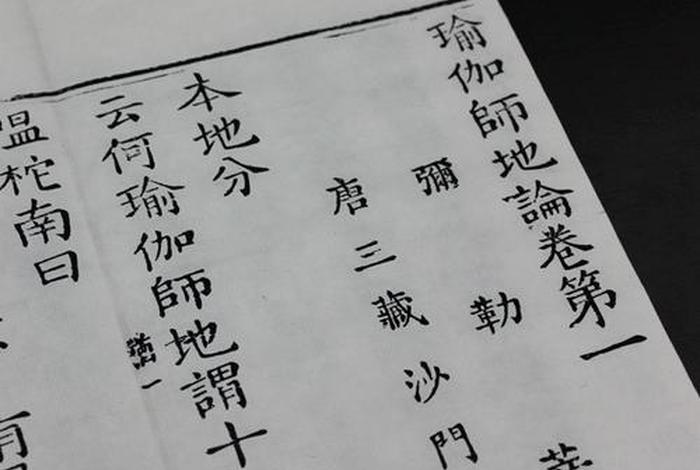 瑜伽師地論卷第一
彌勒菩
唐三藏沙門
本地分
云何瑜伽師地謂十
嗢柁南曰
有